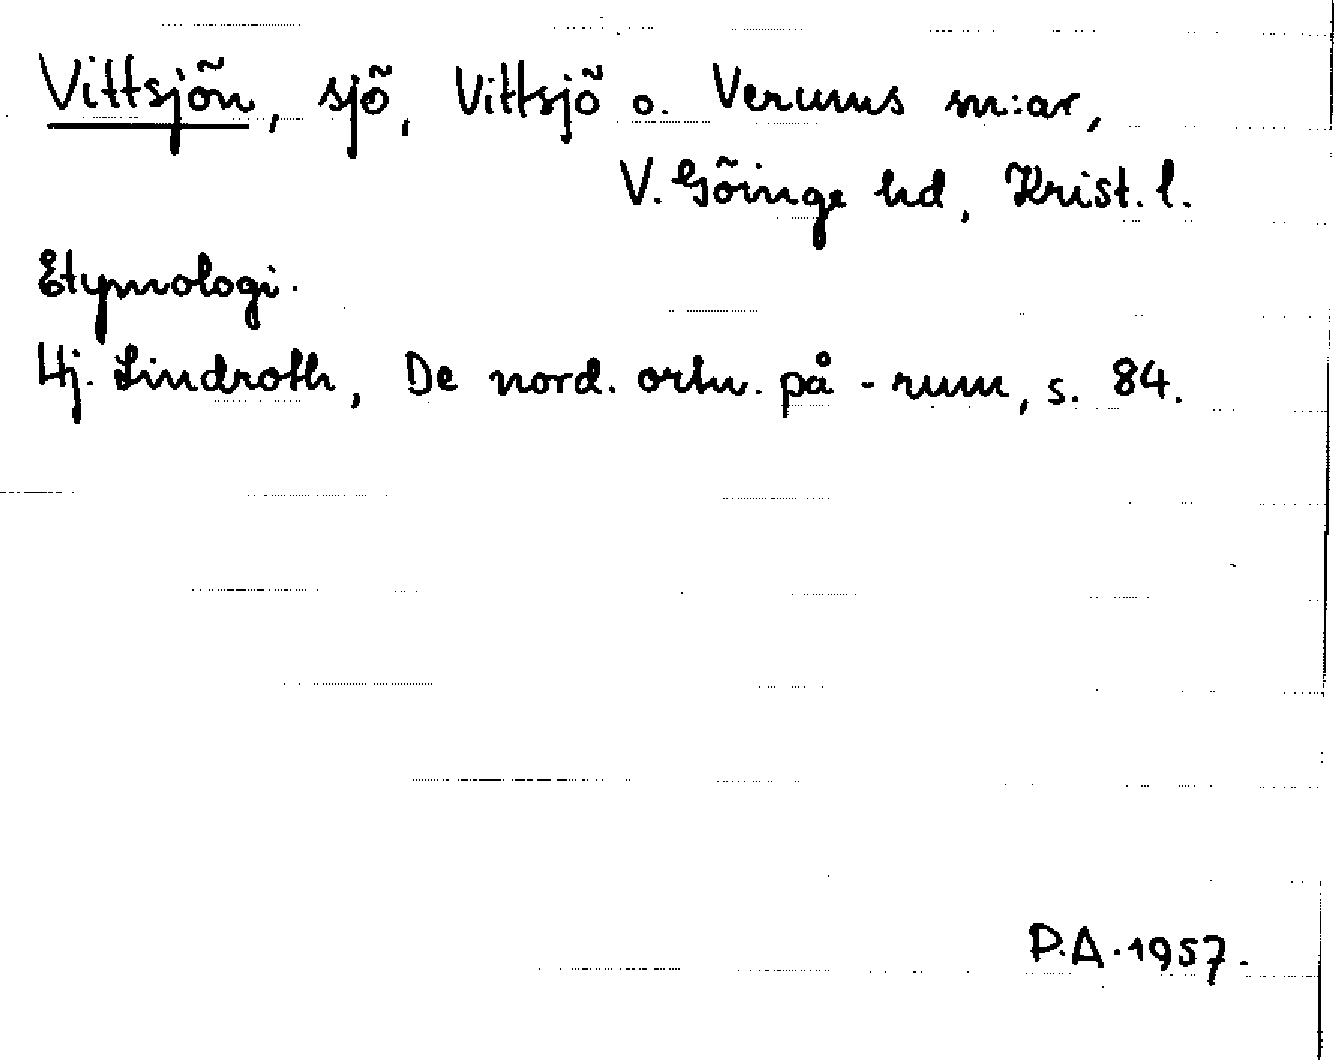 Vittsjön, sjö, Vittsjö o. Verums sn:ar,
V. Göinge hd, Krist. l.
Etymologi.
Hj. Lindroth, De nord. ortn. på -rum, s. 84.
P.A. 1957.